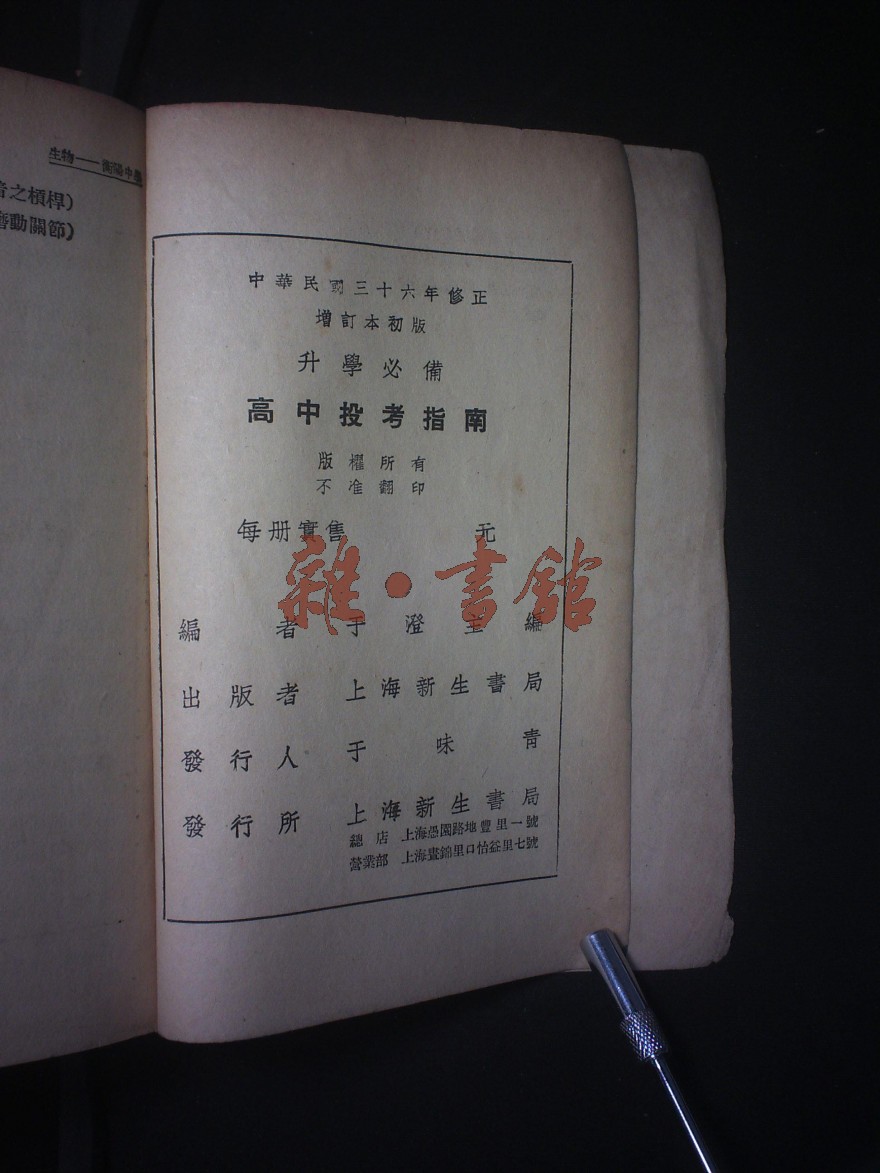 生物——衡陽中學
者之槓桿)
磨動關節)
中華民國三十六年修正
增訂本初版
升學必備
高中投考指南
版權所有
不准翻印
每册實售 元
雜·書館
編者 于澄主編
出版者 上海新生書局
發行人 于味青
發行所 上海新生書局
總店 上海愚園路地豐里一號
營業部 上海畫錦里口怡益里七號